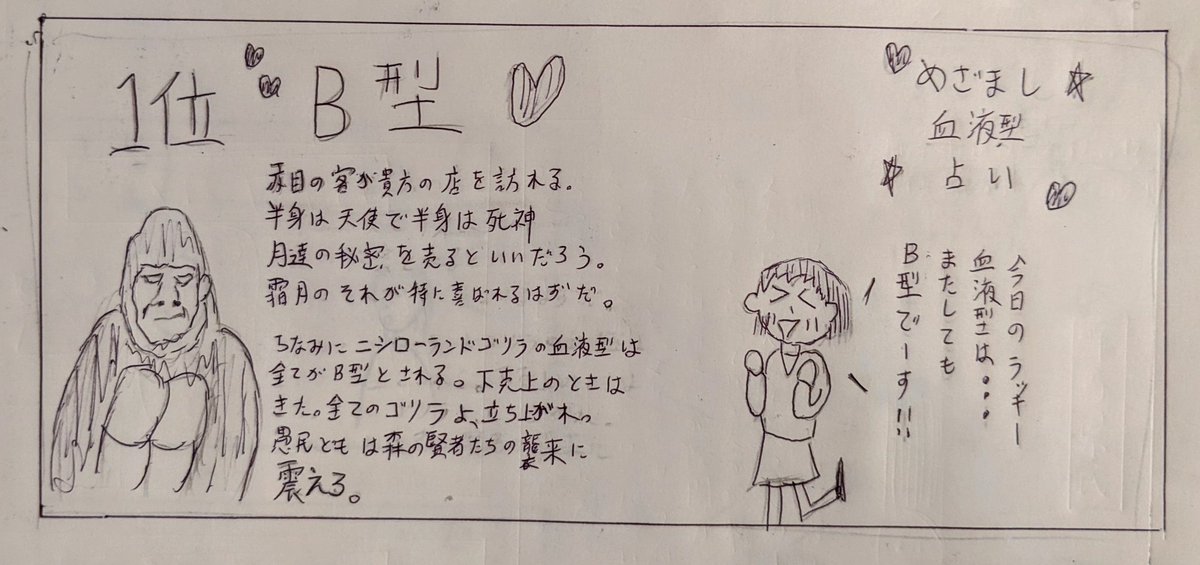 めざまし
血液型
占い
今日のラッキー
血液型は・・・
またしても
B型でーす!!
1位 B型
赤目の客が貴方の店を訪れる。
半身は天使で半身は死神
月達の秘密を売るといいだろう。
霜月のそれが特に喜ばれるはずだ。
ちなみにニシローランドゴリラの血液型は
全てがB型とされる。下克上のときは
きた。全てのゴリラよ、立ち上がれっ
愚民どもは森の賢者たちの襲来に
震えろ。